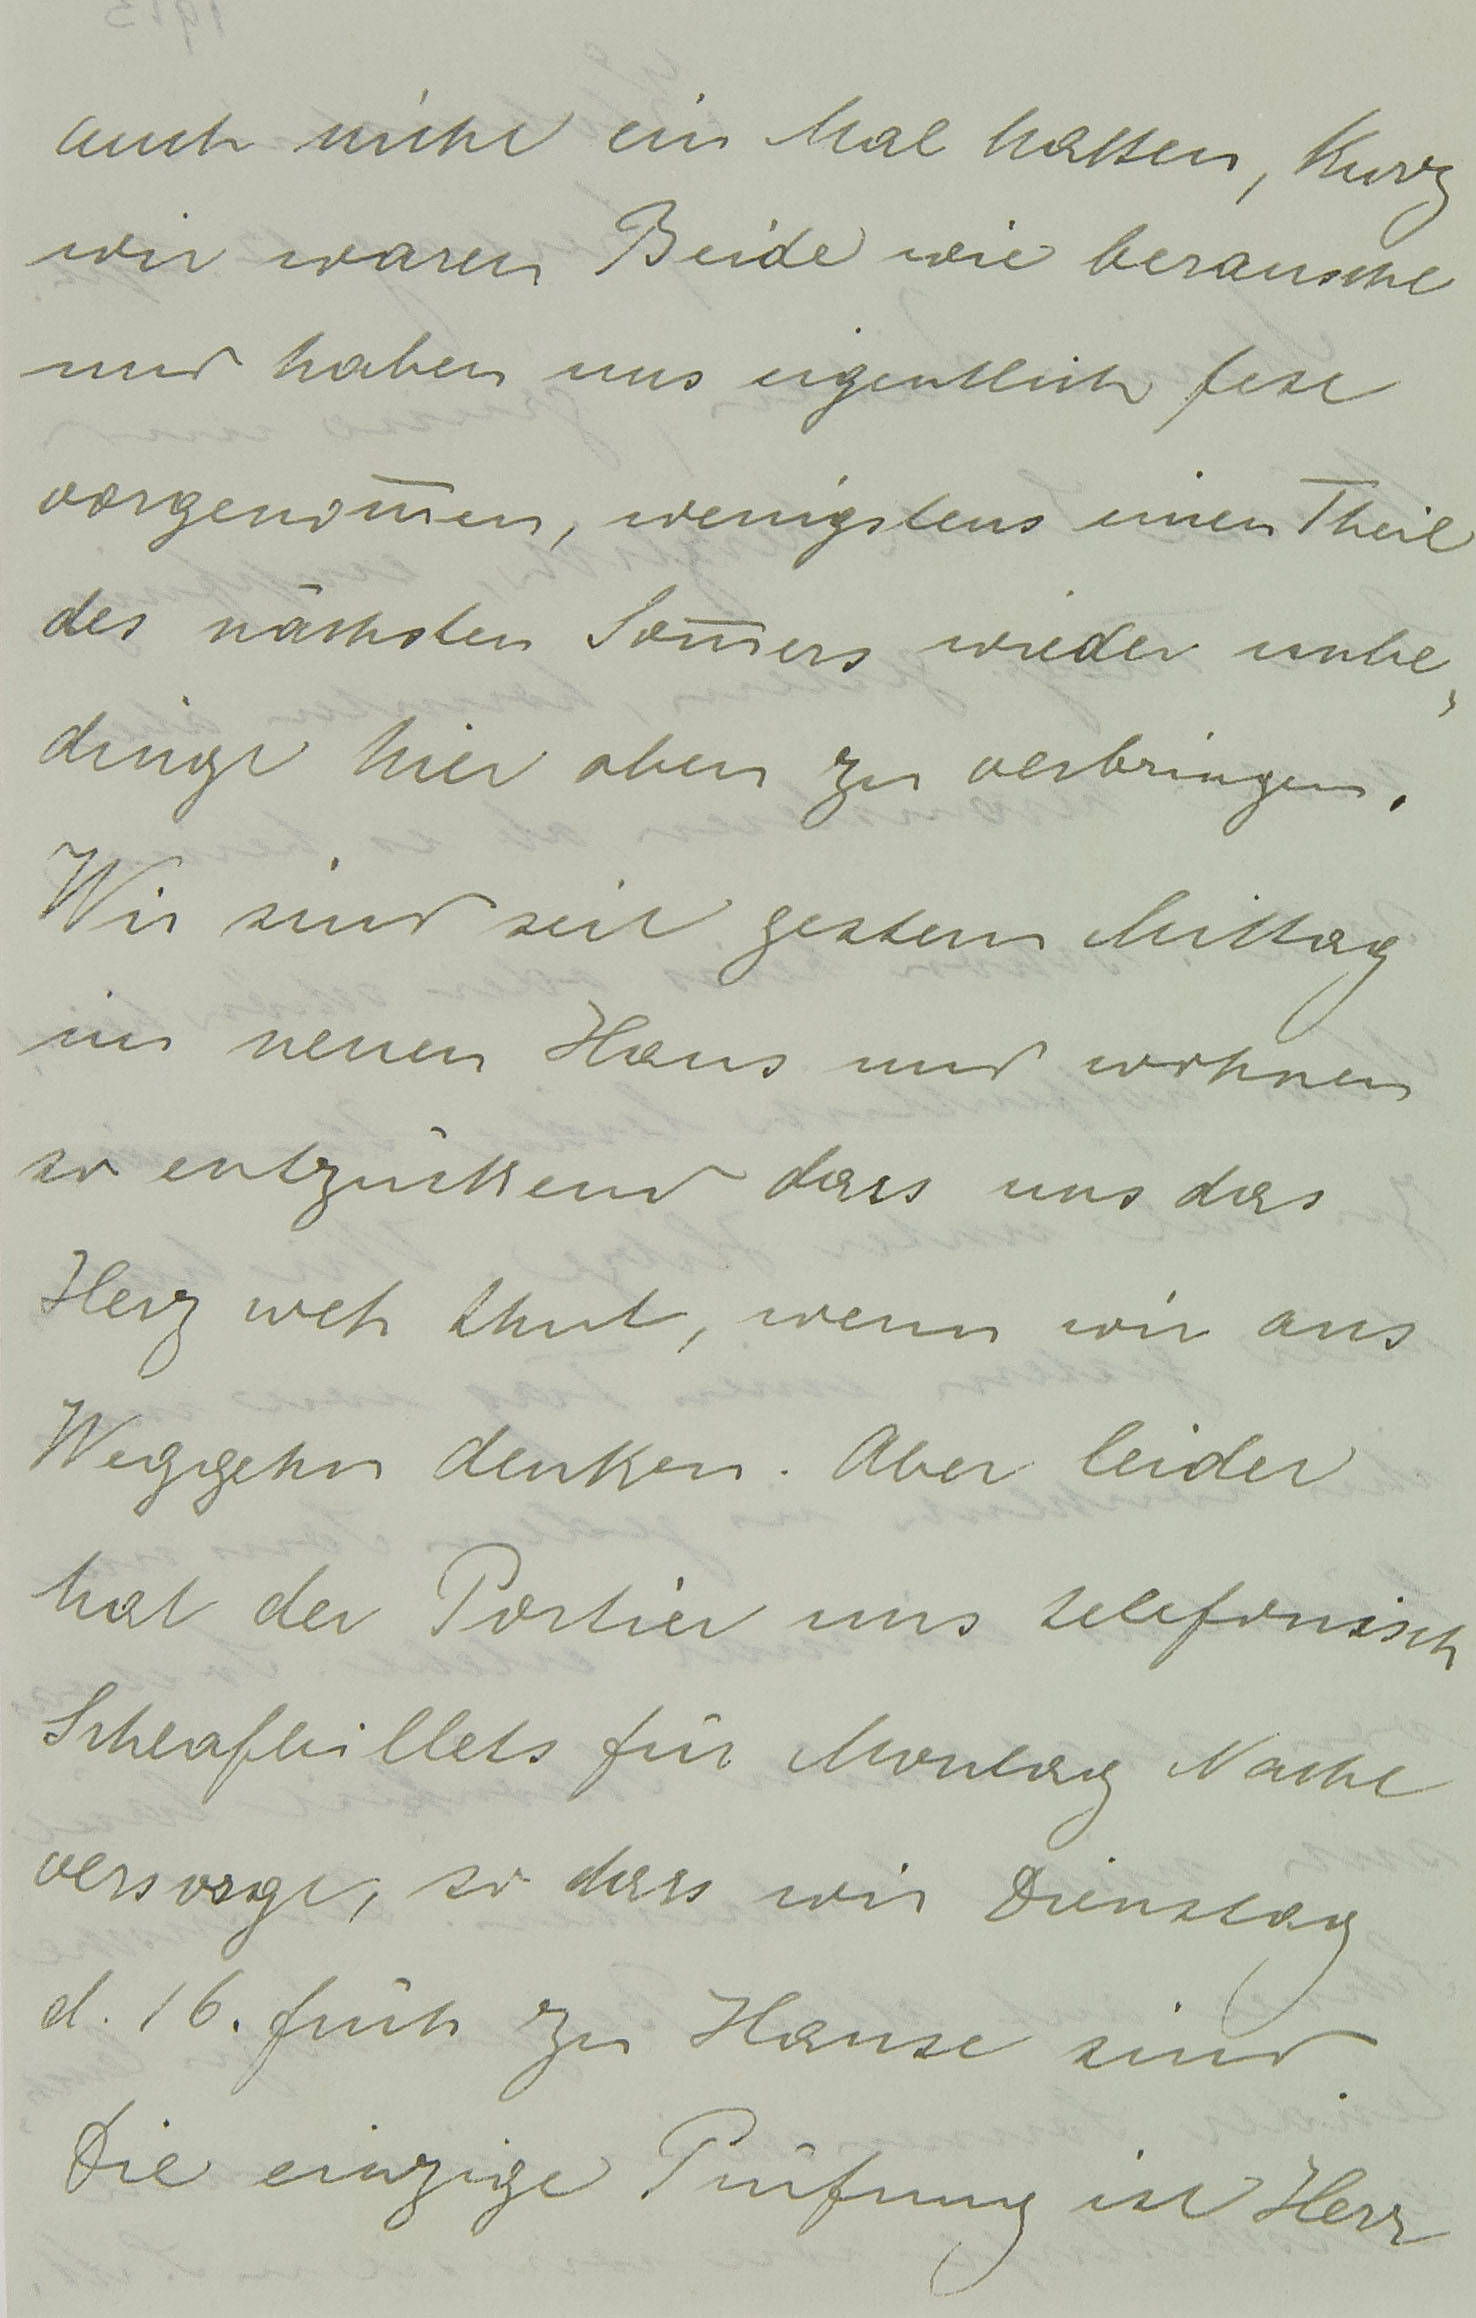 auch nicht ein Mal hatten, kurz
wir waren Beide wie berauscht
und haben uns eigentlich fest
vorgenom̅en, wenigstens einen Theil
des nächsten Som̅ers wieder unbe,
dingt hier oben zu verbringen.
Wir sind seit gestern Mittag
im neuen Haus und wohnen
so entzückend dass uns das
Herz weh thut, wenn wir ans
Weggehn denken. Aber leider
hat der Portier uns telefonisch
Schlafbillets für Montag Nacht
versorgt, so dass wir Dienstag
d. 16. früh zu Hause sind
Die einzige Prüfung ist Herr